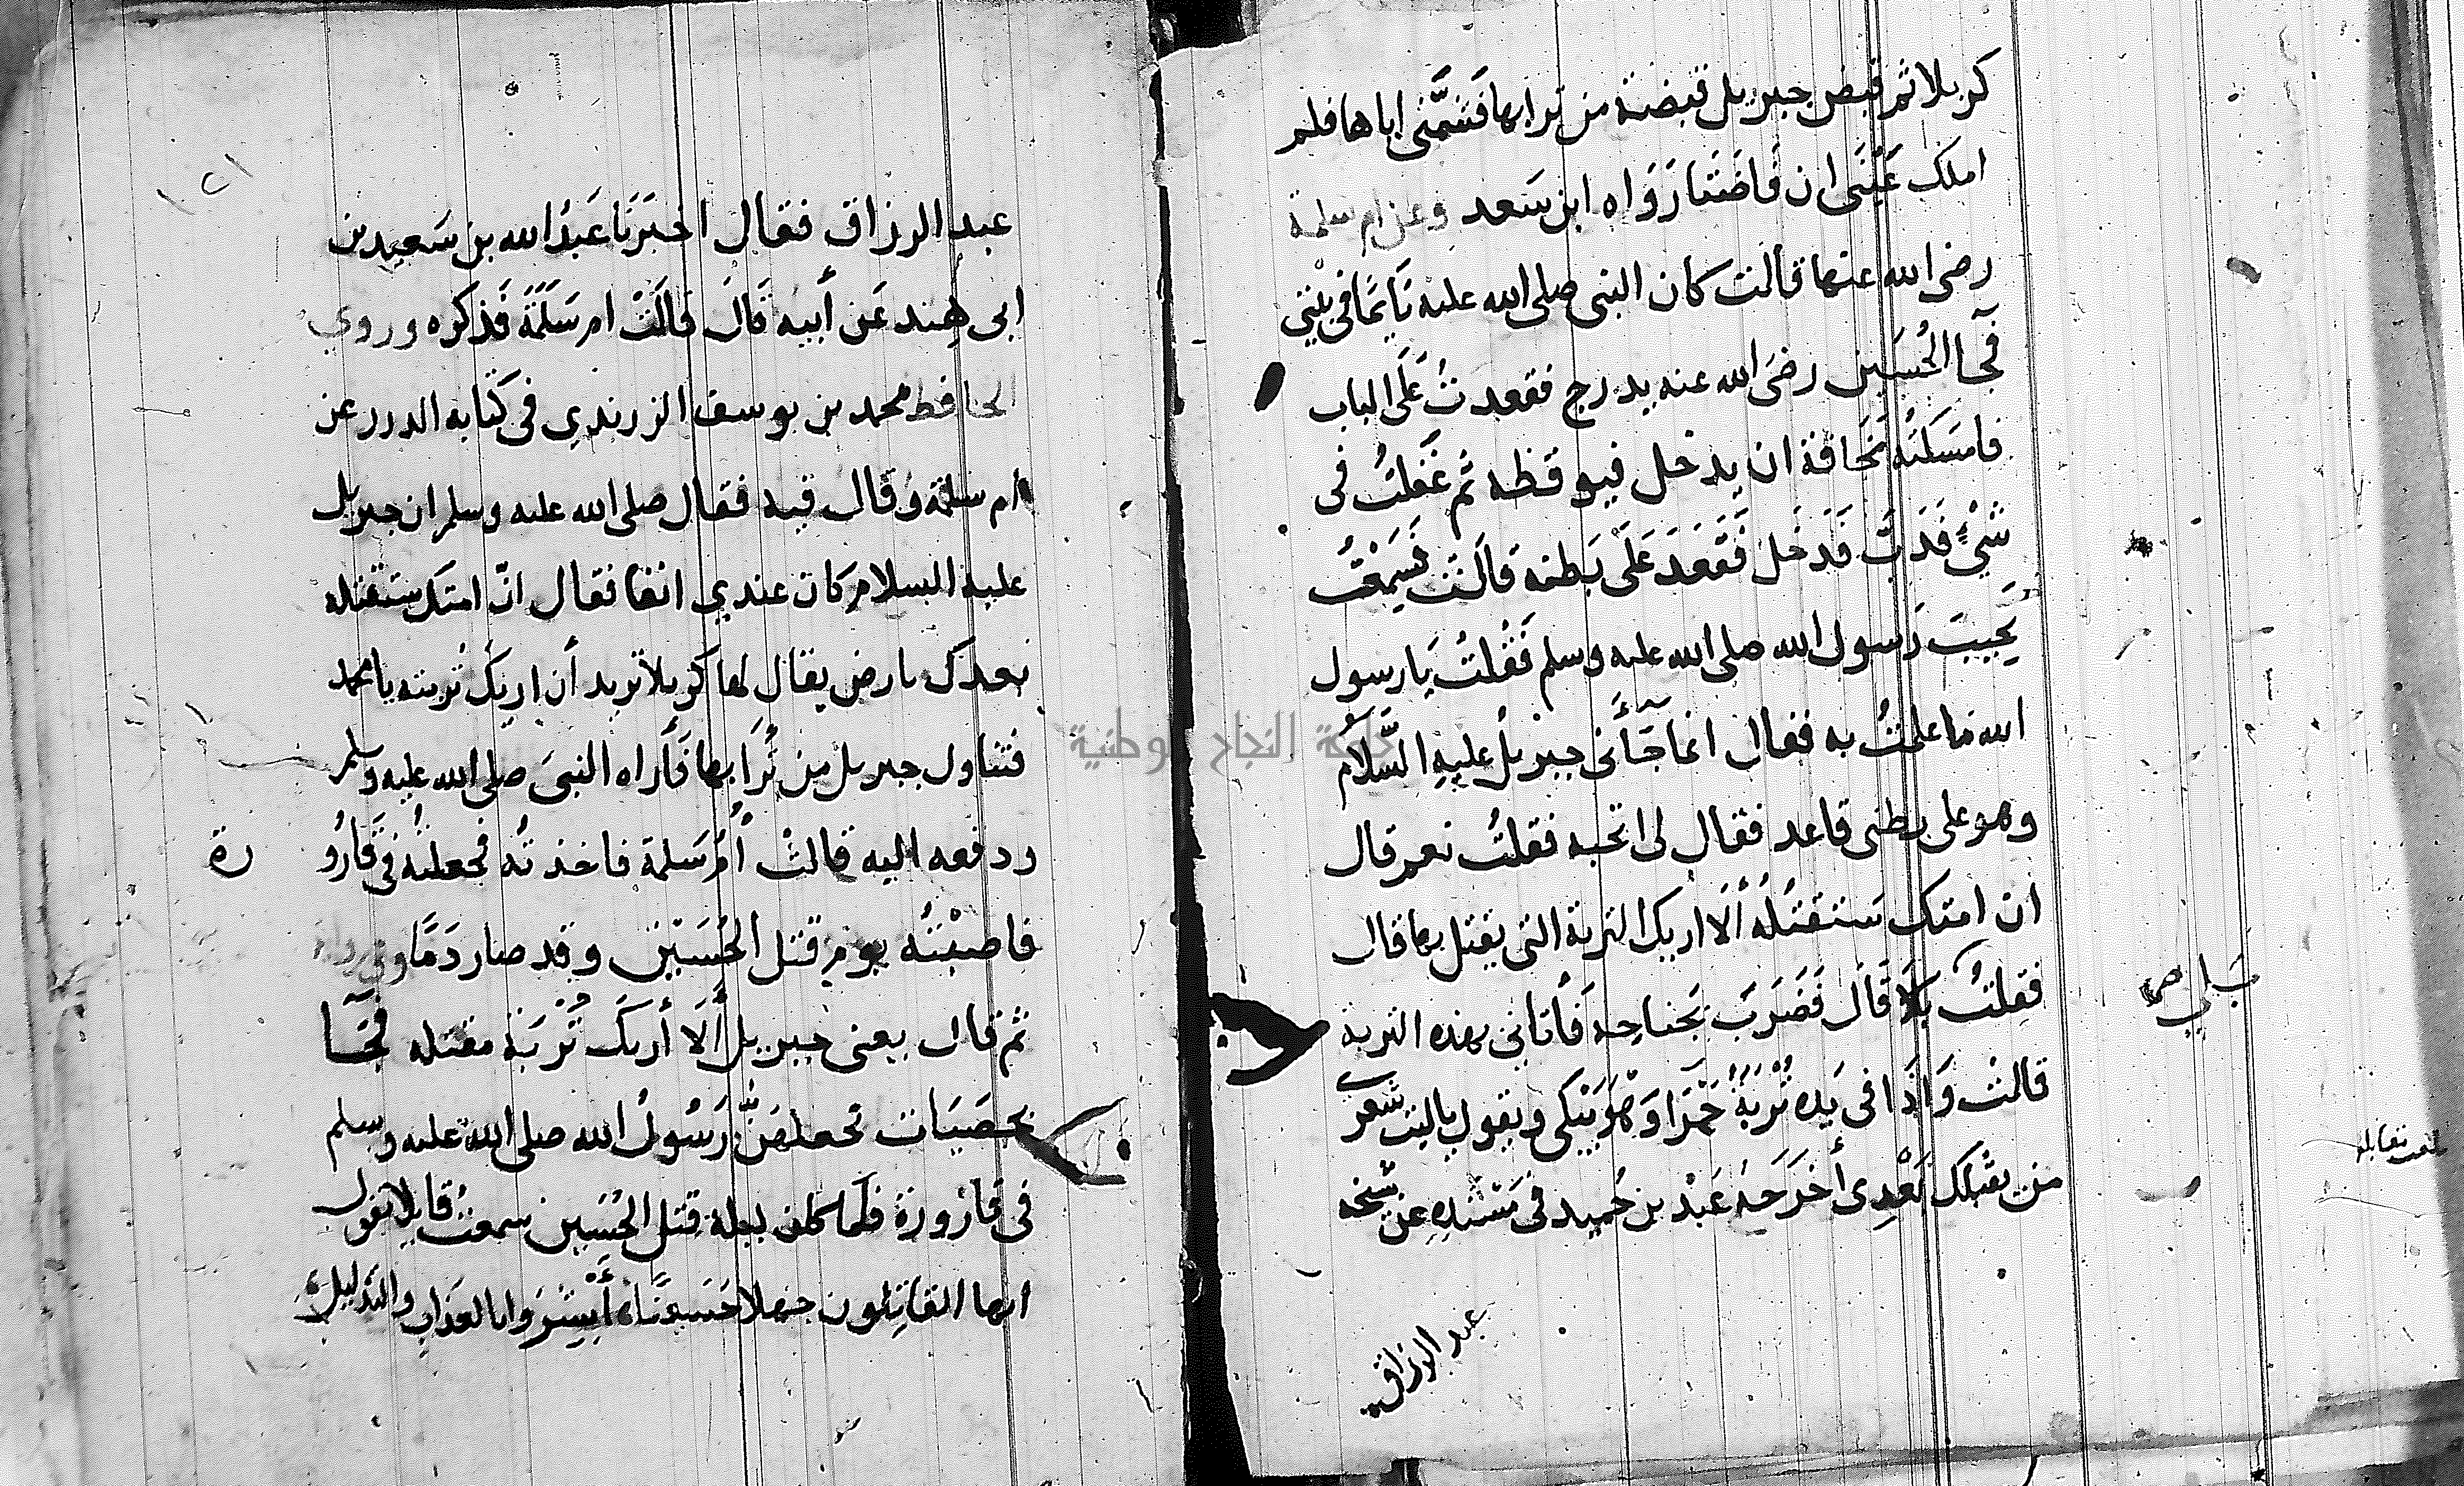 كربلا ثم قبض جبريل قبضة من ترابها فشمَّني اياها فلم
املك عَيْنَيَّ ان فَاضَتَا رَوَاه ابن سَعد وعن ام سلمة
رضي الله عنها قالت كان النبي صلى الله عليه نَايمًا في بيتي
فجآ الحُسَين رضيَ الله عنه يدرج فقعدتُ عَلَى الباب
فامسَكتهُ مَخَافة ان يدخل فيوقظه ثم غَفلتُ في
شَيْءٍ فَدَبَّ فَدَخَل فَقَعَدَ عَلَى بَطنه قَالَت فَسَمِعْتُ
نَحِيبَ رَسول الله صلى الله عليه وسلم فَقُلتُ يَا رسول
الله مَا علمتُ به فقال انما جَآَني جبريلُ عليهِ السَّلامُ
وهو على بطني قاعد فقال لي اتحبه فقلتُ نعم قال
ان امتك سَتقتُلُهُ أَلَا اريك التربة التي يقتل بها قال
فقلتُ بَلَا قَالَ فَضَرَبَ بجَناحِه فَأتاني بهذه التربة
بَلى صح
قالتْ وَاِذَا في يَدِه تُرْبَةٌ حَمْرَا وَهُوَ يَبْكي ويقول ياليت شعري
من يقتلك بَعْدِي أخرَجَهُ عَبْد بن حُميد في مسْنَدِهِ عن شيخه
عبد الرزاق
عبد الرزاق فقال اخبَرَنَا عَبدُ الله بن سَعيد بن
ابى هِند عَن أبيه قَالَ قَالَتْ ام سَلَمَةَ فَذكَره وروي
الحافظ محمد بن يوسف الزرندي في كتابه الدرر عن
ام سلمة وقال فيه فقال صلى الله عليه وسلم ان جبريل
عليه السلام كان عندي انفا فقال انّ امتك ستقتله
بعدك بارض يقال لها كربلا تريد أن اريكَ تُربته يا محمد
فتناول جبريل من تُرَابها فَأَراه النبيَ صلى الله عليه وسلم
ودفعه اليه قالتْ أُمُّ سَلمة فاخذتُه فجعلتُهُ في قَارُو رة
فاصبْتُه يوم قتل الحُسَيْن وقد صار دَمًا وفي رواية
ثم قال يعني جبريل أَلَا أريكَ تُرْبَةَ مقتله فجَآ
بحصَيَات فجعلهنَّ رَسُولُ الله صلى الله عليه وسلم
في قَارُورَة فلما كان ليلة قتل الحُسَين سمعتُ قايلا يقول
ايها القاتِلون جهلا حُسَينًا أَبْشِرُوا بالعَذَابِ والتذليلِ
جامعة النجاح الوطنية